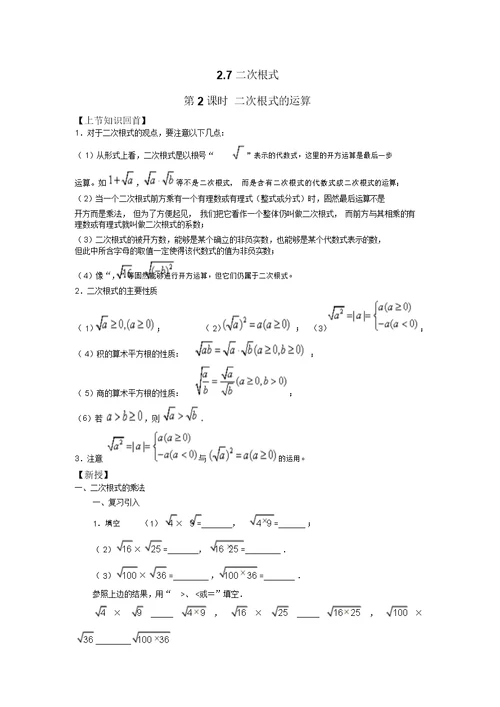 2.7二次根式
第2课时 二次根式的运算
【上节知识回首】
1．对于二次根式的观点，要注意以下几点：
（1）从形式上看，二次根式是以根号“ √ ”表示的代数式，这里的开方运算是最后一步
运算。如 1+√a ，√a·√b 等不是二次根式， 而是含有二次根式的代数式或二次根式的运算；
（2）当一个二次根式前方乘有一个有理数或有理式（整式或分式）时，固然最后运算不是
开方而是乘法， 但为了方便起见， 我们把它看作一个整体仍叫做二次根式， 而前方与其相乘的有
理数或有理式就叫做二次根式的系数；
（3）二次根式的被开方数，能够是某个确立的非负实数，也能够是某个代数式表示的数，
但此中所含字母的取值一定使得该代数式的值为非负实数；
（4）像“，√16 √(-b)² 等固然能够进行开方运算，但它们仍属于二次根式。
2．二次根式的主要性质
（1）√a≥0,(a≥0) ； （2）(√a)²=a(a≥0) ； （3）√a²=|a|={a(a≥0) -a(a<0) ；
（4）积的算术平方根的性质： √ab=√a·√b(a≥0,b≥0) ；
（5）商的算术平方根的性质： √(a/b)=√a/√b(a≥0,b>0) ；
（6）若 a>b≥0 ，则 √a>√b ．
3．注意 √a²=|a|={a(a≥0) -a(a<0) 与 (√a)²=a(a≥0) 的运用。
【新授】
一、二次根式的乘法
一、复习引入
1．填空 （1）√4×√9=______， √4×9=______；
（2）√16×√25=_______，√16×25=________．
（3）√100×√36=________，√100×36=_______．
参照上边的结果，用“ >、<或=”填空．
√4×√9_____√4×9，√16×√25_____√16×25，√100×
√36________√100×36